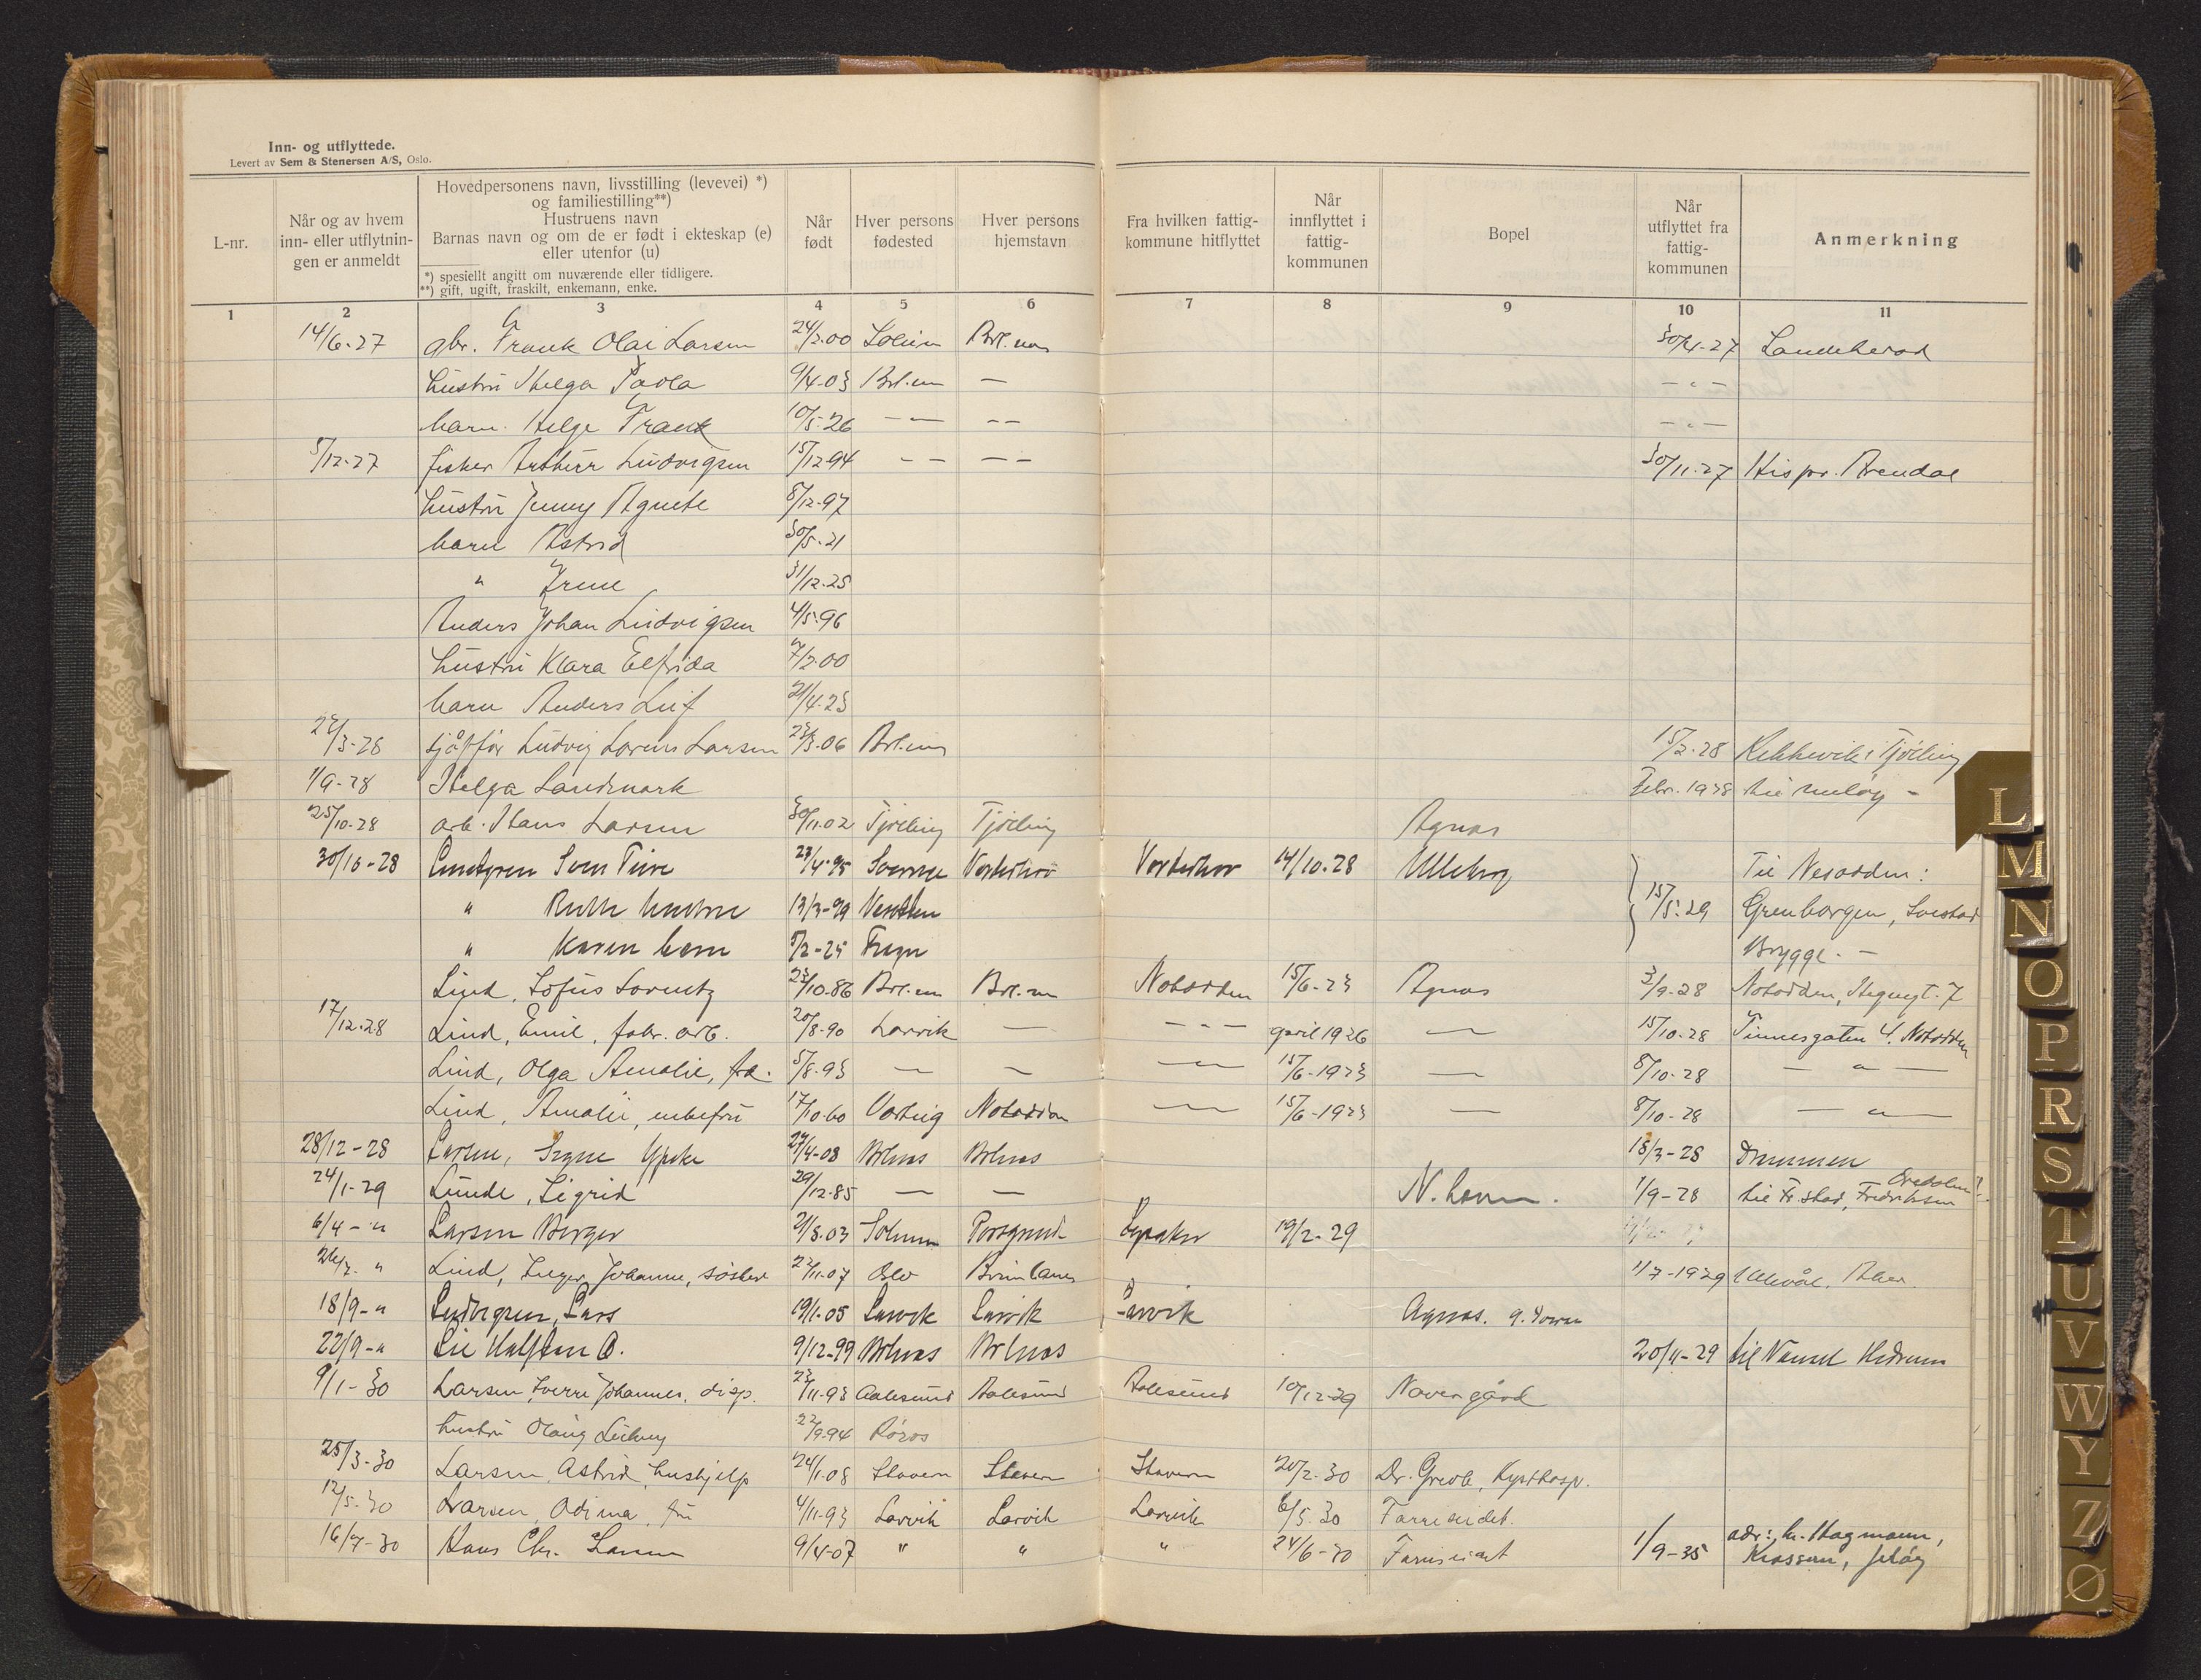 Inn- og utflyttede.
Levert av Sem & Stenersen A/S, Oslo.
L-nr.
Når og av hvem inn- eller utflytnin-gen er anmeldt
Hovedpersonens navn, livsstilling (levevei) *)
og familiestilling**)
Hustruens navn
Barnas navn og om de er født i ekteskap (e)
eller utenfor (u)
*) spesiellt angitt om nuværende eller tidligere.
**) gift, ugift, fraskilt, enkemann, enke.
Når født
Hver persons fødested
Hver persons hjemstavn
Fra hvilken fattig-kommune hitflyttet
Når innflyttet i fattig-kommunen
Bopel
Når utflyttet fra fattig-kommunen
Anmerkning
1 2 3 4 5 6 7 8 9 10 11
14/6-27 gbr. Frank Olai Larsen 24/2.00 Solum Brl.nes 30/4-27 Sandeherad
hustru Helga Paola 9/4-03 Brl.nes — — " —
barn. Helge Frank 10/5-26 — — — " —
5/12-27 fisker Arthur Ludvigsen 15/12 94 — — — — 30/11-27 Hispr. Arendal
hustru Jenny Agnete 8/12-97
barn Astrid 30/5-21
" Irene 31/12-25
Anders Johan Ludvigsen 4/5-96
hustru Klara Elfrida 7/2.00
barn Anders Leif 21/4-23
22/3-28 sjåfør Ludvig Lorens Larsen 23/3-06 Brl.nes 15/2-28 Tjølling
1/9-28 Helga Landmark Febr. 1928 til
25/10-28 arb. Hans Larsen 30/11.02 Tjølling Tjølling Agnes
30/10-28 Lundgren Sven Ture 29/4-95 Vesterhov Vesterhov 14/10.28 Ulleborg Til Nesodden:
" Ruth hustru 13/3-99 Nesodden 15/5-29 Grenborgen,
" Karen barn 5/2-25 Frogn Brygge. —
Lind, Sofus Lorentz 23/10-86 Brl.nes Brl.nes Notodden 15/6-23 Agnes 3/9-28 Notodden, 7
17/12-28 Lind, Emil, fabr. arb. 20/8-90 Larvik — — " — april 1926 — 15/10-28 Tinnesgaten 4, Notodden
Lind, Olga Amalie, 5/8-93 — — — 15/6-1923 — 8/10-28 — " —
Lind, Amalie, enkefru 17/10 60 Notodden — 15/6-1923 — 8/10-28 — " —
28/12-28 Larsen, Signe 27/4-08 Brlnes Brlnes 18/3-28 Drammen
24/1-29 Lunde, Sigrid 29/12-85 — — N. havn. 1/9-28 til Fr.stad,
6/4-" Larsen Birger 21/8.03 Solum Porsgrund Lysaker 19/2-29
26/7 " Lind, Inger Johanne, søster 22/11-07 Oslo Brunlanes 1/7-1929 Ullevål, Aker.
18/9-" Ludvigsen, Lars 19/1-05 Larvik Larvik Larvik Agnes.
22/9-" Lie Halfdan O. 9/12-99 Brlnes Brlnes 20/4-29 til Nanset Hedrum
9/1-30 Larsen, Sverre Johannes, disp. 23/11-93 Aalesund Aalesund Aalesund 10/12-29 Naver gård
hustru 22/9-94 Røros
25/3-30 Larsen, Astrid, hushjelp 24/1-08 Stavern Stavern Stavern 20/2-30 Dr. Greve, Kysthosp.
12/5-30 Larsen, Odina, fru 4/11-93 Larvik Larvik Larvik 6/5.30 Farriseidet.
16/7-30 Hans Chr. Larsen 9/4-07 " " " 24/6-30 Farriseidet 1/9-35 adr: hr. Hagmann,
Krossern, Jeløy
L
M
N
O
P
R
S
T
U
V
W
Y
Z
Ø